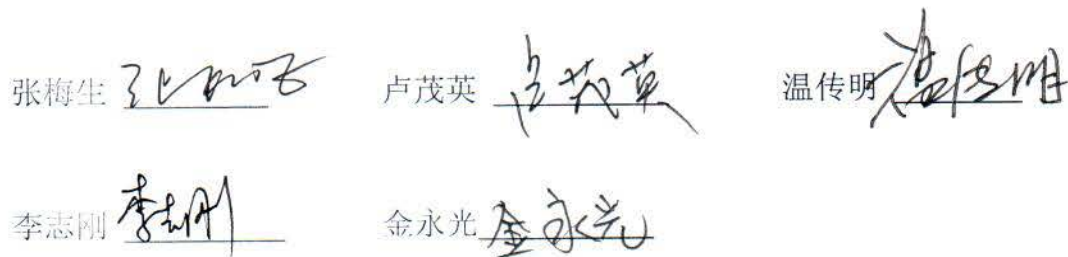 张梅生 卢茂英 卢茂英 温传明 温传明
李志刚 李志刚 金永光 金永光